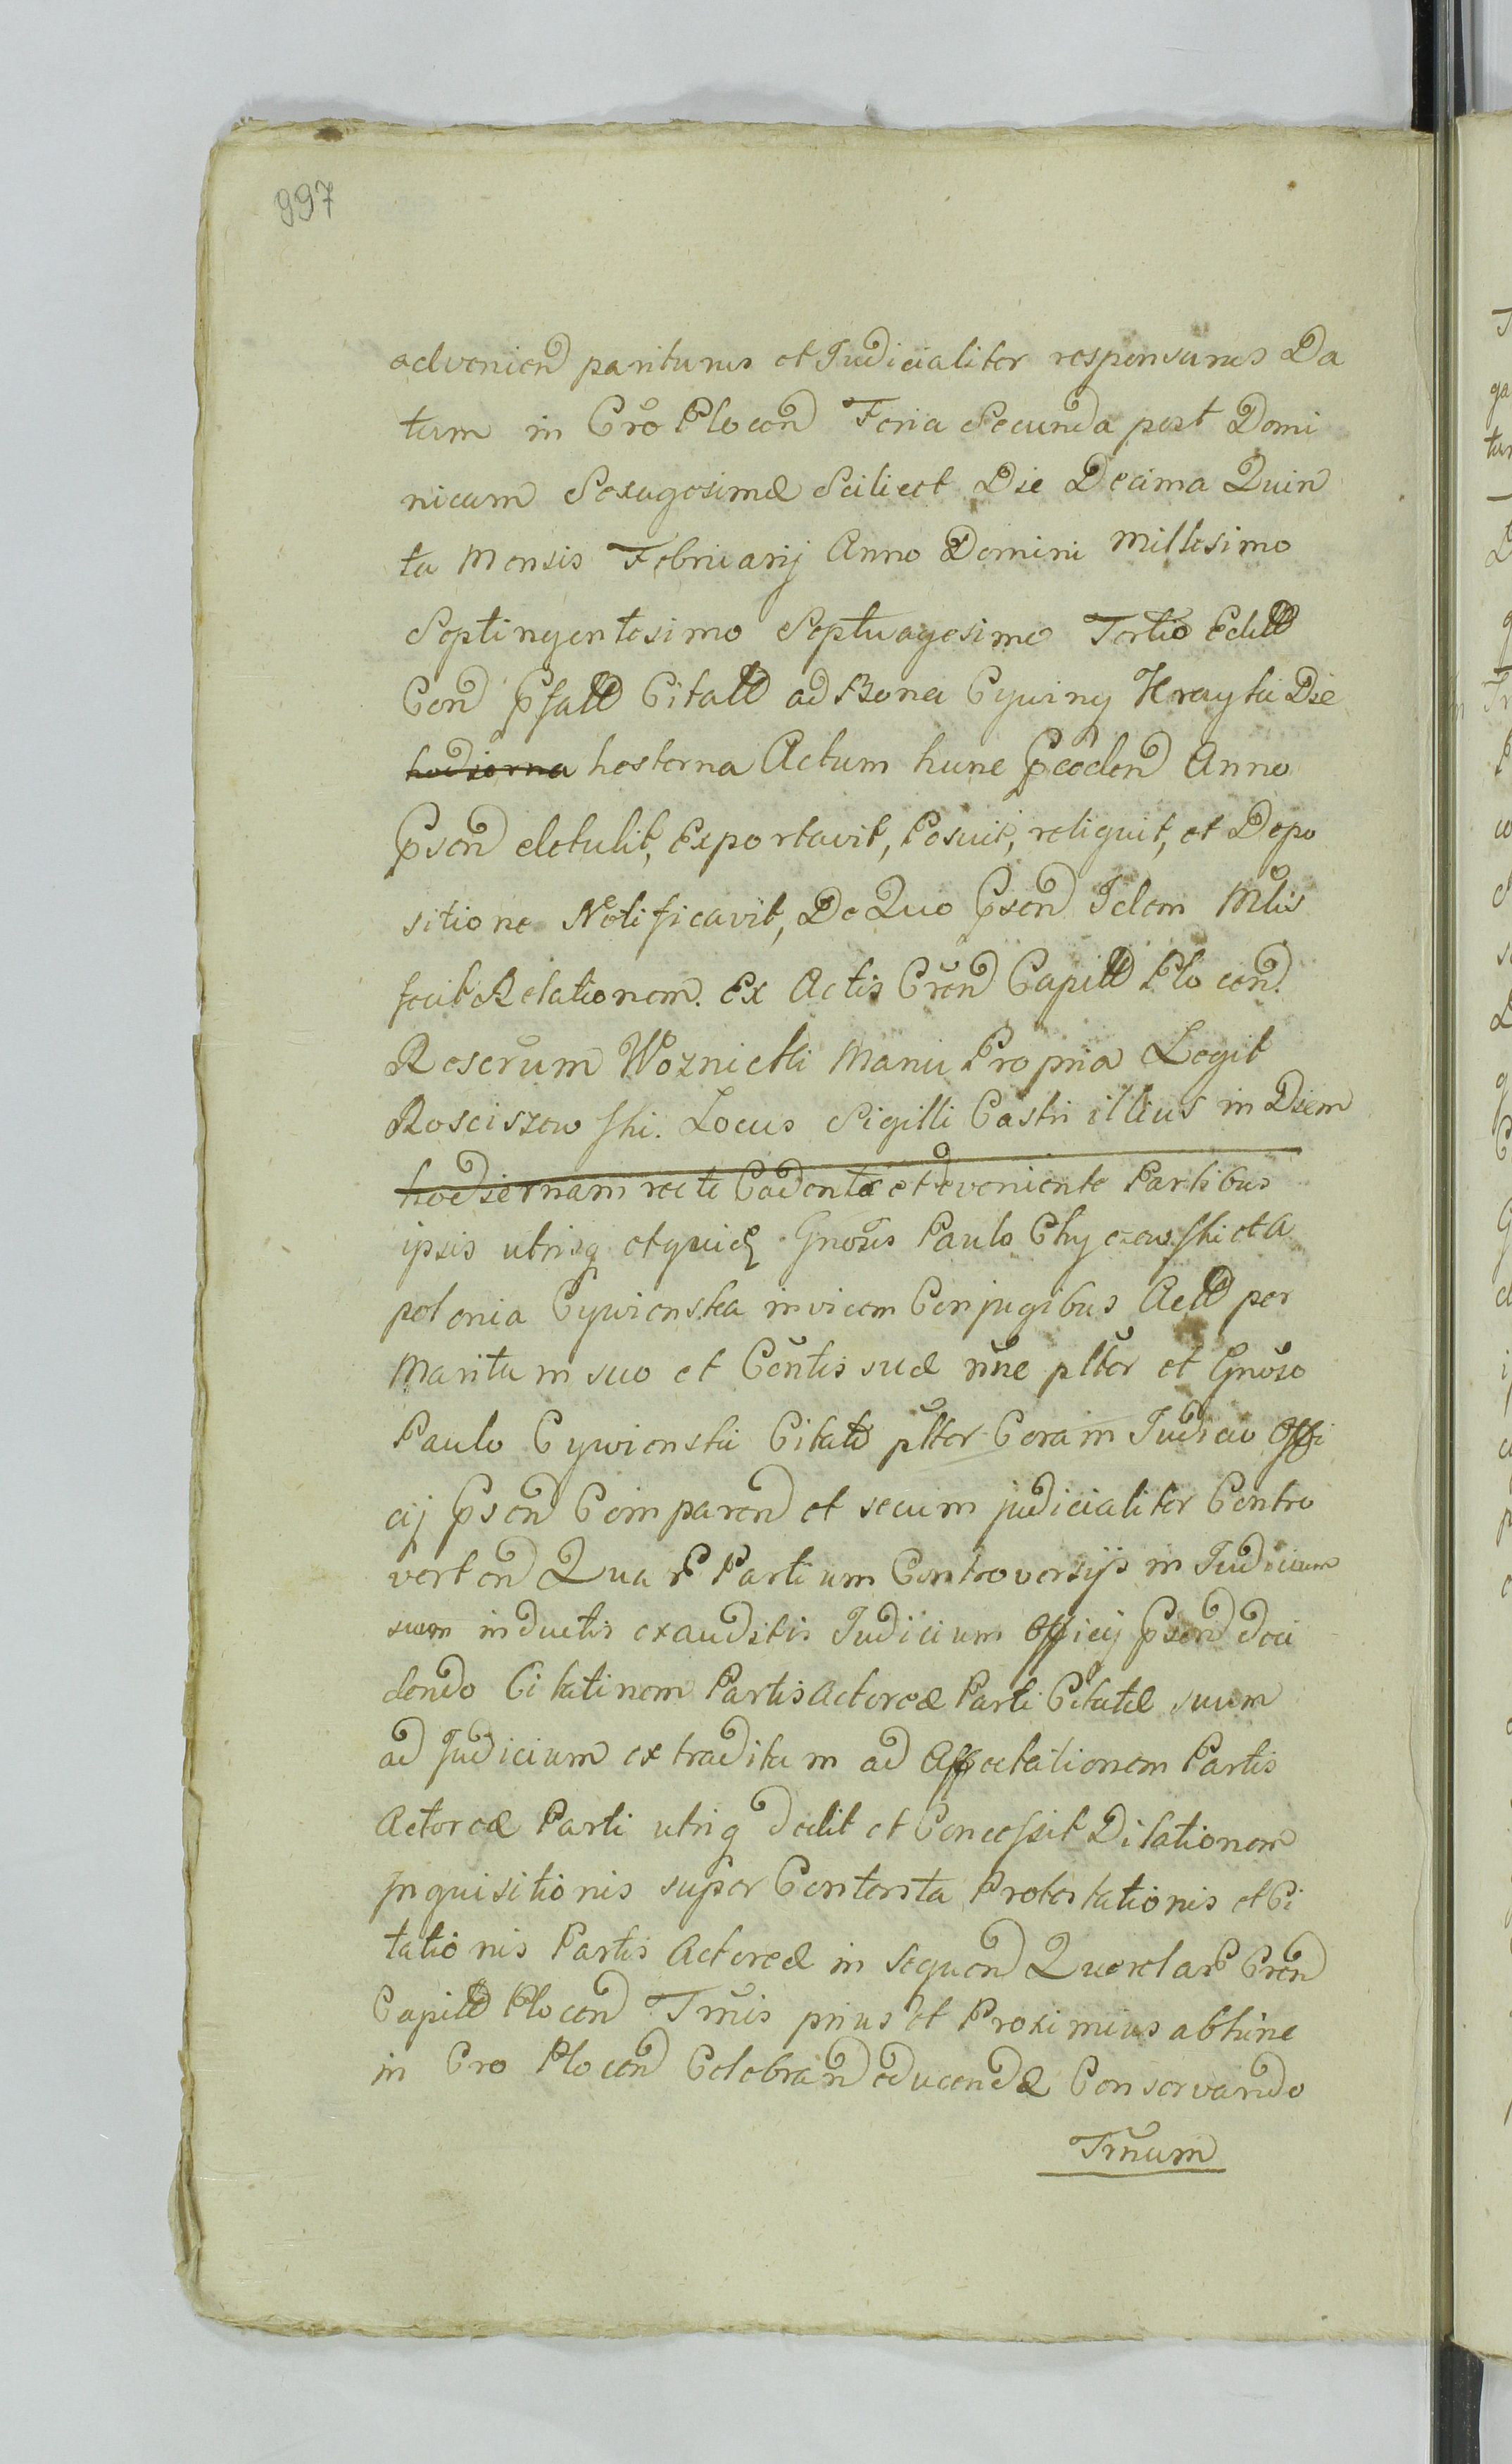 997
advenien pariturus et Judicialiter responsurus Da
tum in Cro Plocen Feria Secunda post Domi
nicam Sexagesimæ Scilicet Die Decima Quin
ta Mensis Februarij Anno Domini Millesimo
Septingentesimo Septuagesimo Tertio
Con Citall ad Bona Cywiny Krayki Die
hodierna hesterna Actum hunc pcoden Anno
psen detulit, Exportavit, Posuit, reliquit, et Depo
sitione Notificavit, De Quo psen Idem Mtlis
fecit Relationem. Ex Actis Cren Capitll Plocen
Rescrum Woznicki Manu Propria Legit
Rosciszewski. Locus Sigilli Castri illius in Diem
hodiernam recte Cadente et eveniente Partibus
ipsis utrisq et quidq Gnosis Paulo Chyczewski et A
polonia Cywienska invicem Conjugibus Actll per
Maritum suo et Centis suæ nne pltter et Gnoso
Paulo Cywienski Citato pltter Coram Judicio Offi
cij psen Comparen et secum judicialiter Contro
verten Quar Partium Controversijs in Judicium
suum inductis exauditis Judicium Officij psen deci
dendo Citatinem Partis Actoreæ Parti Citatæ suum
ad Judicium extraditam ad Affectationem Partis
Actoreæ Parti utriq dedit et Concessit Dilationem
Inquisitionis super Contenta Protestationis et Ci
tationis Partis Actoreæ in sequen Querelar Cren
Capitll Plocen Trnis prius et Proximius abhinc
in Cro Plocen Celebran educendæ Conservando
Trnum